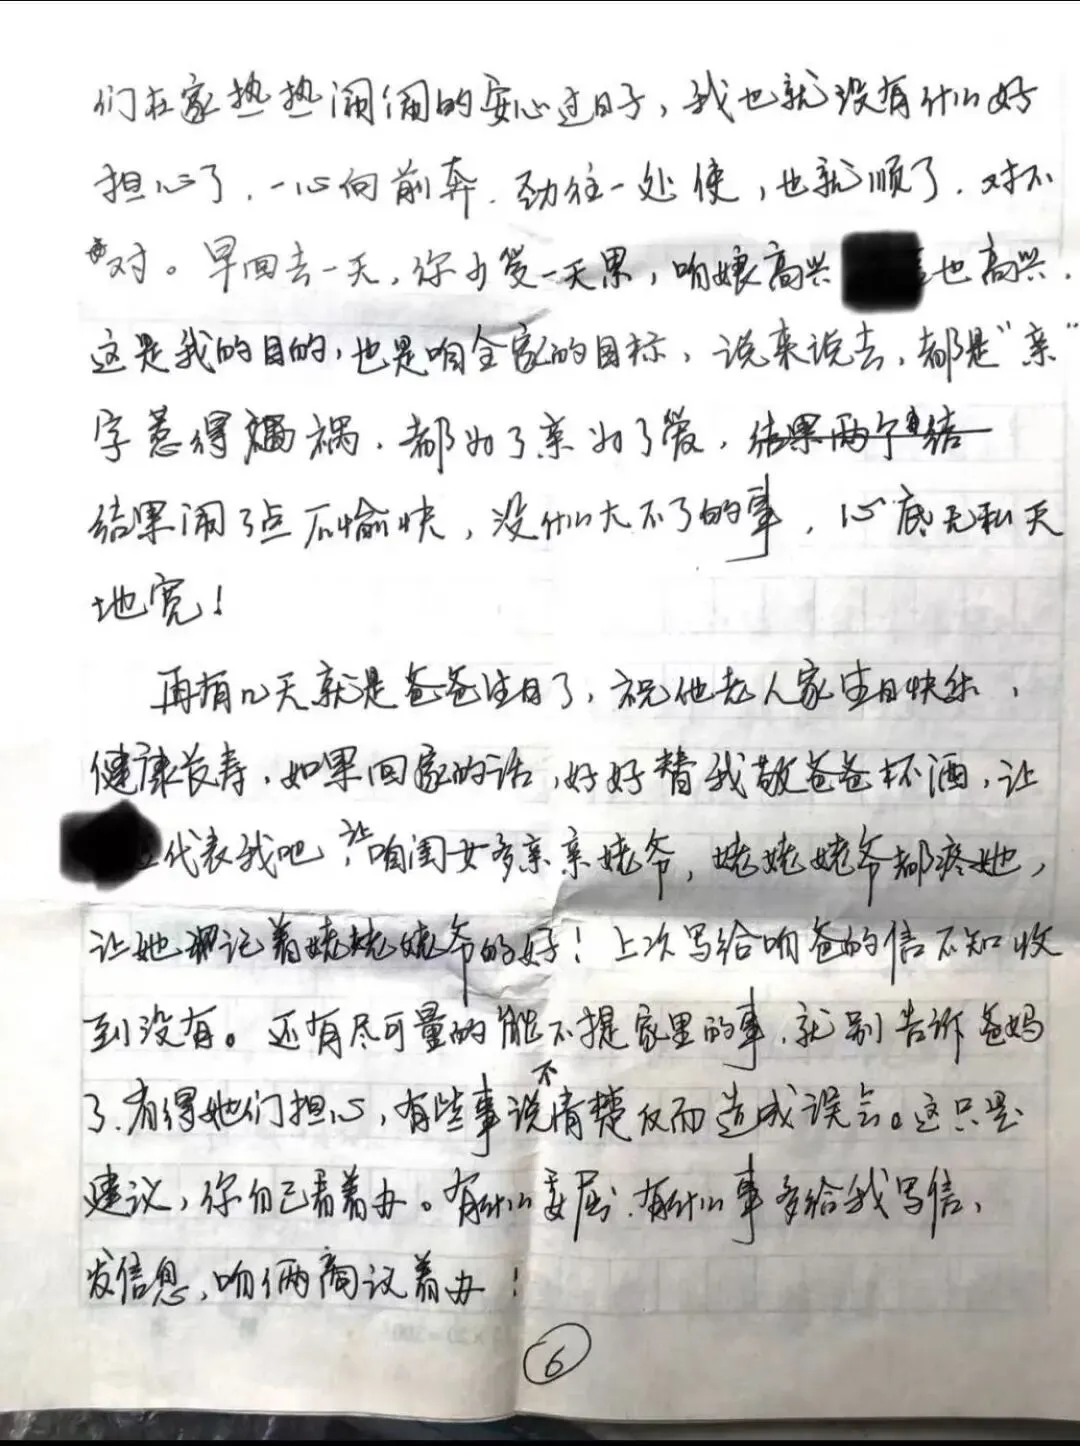 们在家热热闹闹的安心过日子，我也就没有什么好
担心了．一心向前奔．劲往一处使，也就顺了．对不
对。早回去一天，你少受一天累，咱娘高兴 也高兴．
这是我的目的，也是咱全家的目标，说来说去，都是“亲”
字惹得祸．都为了亲为了爱．结果两个结
结果闹了点不愉快，没什么大不了的事，心底无私天
地宽！
再有几天就是爸爸生日了，祝他老人家生日快乐，
健康长寿．如果回家的话，好好替我敬爸爸杯酒，让
代表我吧，让咱闺女多亲亲姥爷，姥姥姥爷都疼她，
让她记着姥姥姥爷的好！上次写给咱爸的信不知收
到没有。还有尽可量的能不提家里的事．就别告诉爸妈
了．省得她们担心，有些事说不清楚反而造成误会。这只是
建议，你自己看着办。有什么委屈．有什么事多给我写信，
发信息，咱俩商议着办！
6